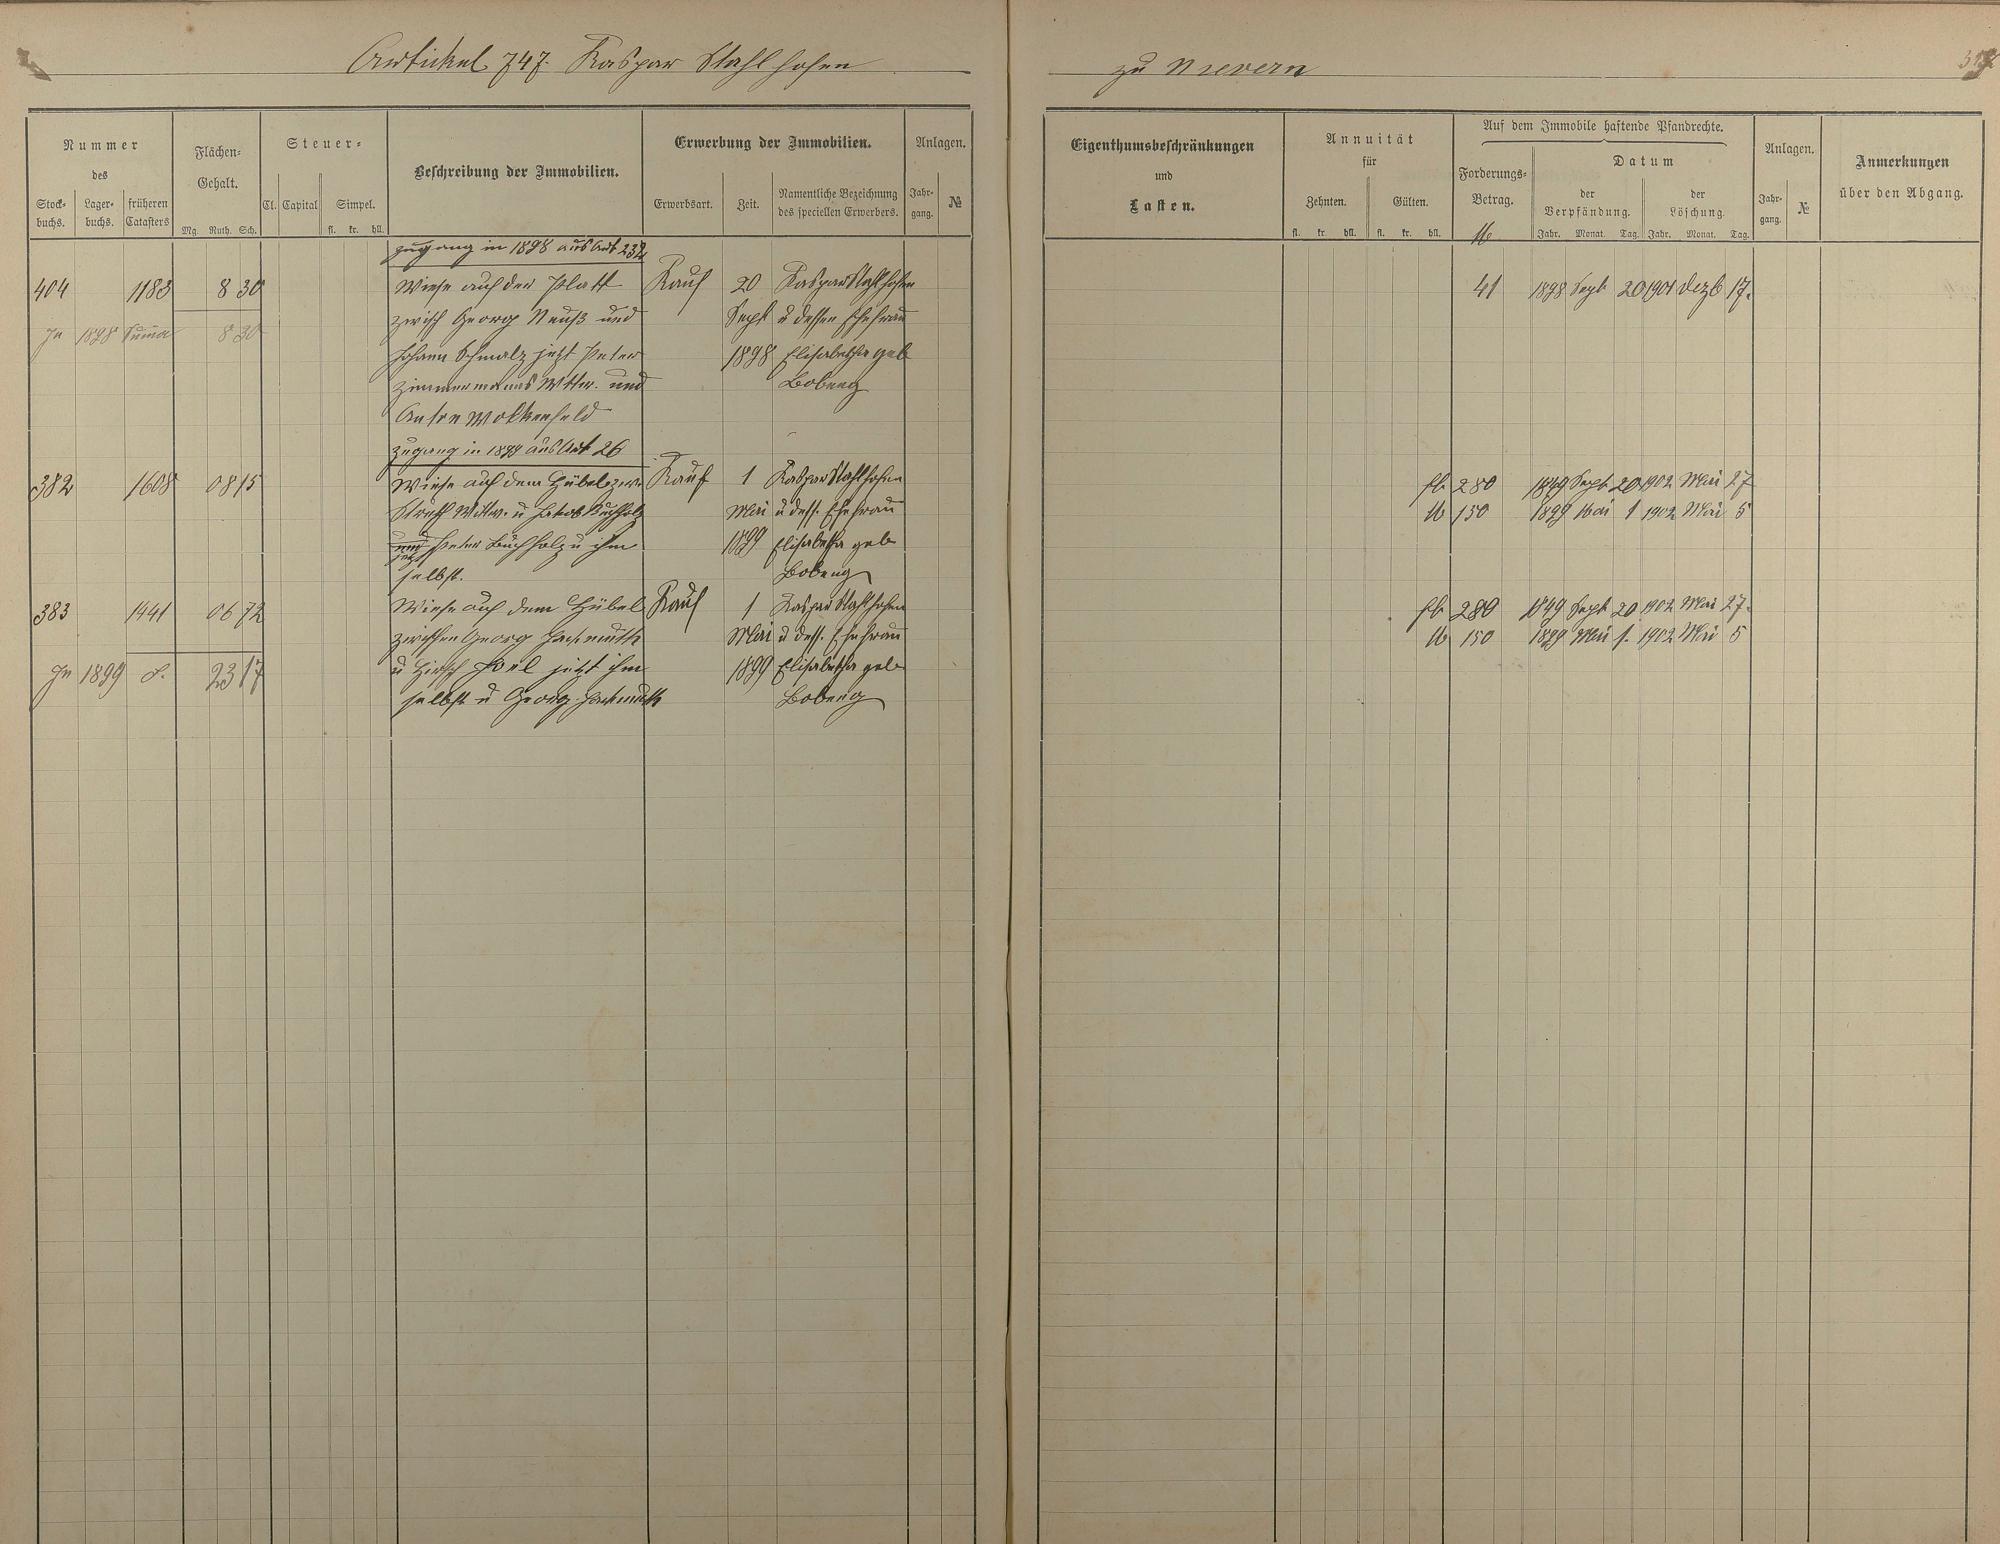 Artickel 747. Kaspar Stahlhofen
zu Nievern
Nummer
des
Stock-
buchs.
Lager-
buchs.
früheren
Catasters
Flächen-
Gehalt.
Mg. Ruth. Sch.
Steuer-
Cl. Capital Simpel.
fl. kr. hll.
Beschreibung der Immobilien.
Erwerbung der Immobilien.
Erwerbsart. Zeit.
Namentliche Bezeichnung
des speciellen Erwerbers.
Anlagen.
Jahr-
gang.
№
Eigenthumsbeschränkungen
und
Lasten.
Annuität
für
Zehnten. Gülten.
fl. kr. hll. fl. kr. hll.
Auf dem Immobile haftende Pfandrechte.
Forderungs-
Betrag.
M
Datum
der
Verpfändung.
der
Löschung.
Jahr. Monat. Tag. Jahr. Monat. Tag.
Anlagen.
Jahr-
gang.
№
Anmerkungen
über den Abgang.
zugang in 1898 aus Art 232
404 1183 8 30 Wiese auf der Platt Kauf 20 Kaspar Stahlhofen 41 1898 Sept 20 1901 Dezb 17.
In 1898 Suma 8 30 zwisch Georg Neuß und Sept u dessen Ehefrau
Johann Schmalz jetzt Peter 1898 Elisabetha geb
Zimmermanns Wttw. und Bobeng
Anton Wolkenfeld
zugang in 1899 aus Art 26
382 1608 08 15 Wiese auf dem Hübel zw. Kauf 1 Kaspar Stahlhofen fl. 280 1849 Sept 20 1902 Mai 27
Wittw. u Jakob Buchholz Mai u dess. Ehefrau M 150 1899 Mai 1 1902 Mai 5
und Peter Buchholz u ihm 1899 Elisabetha geb
jetzt
selbst. Bobeng
383 1441 06 72 Wiese auf dem Hübel Kauf 1 Kaspar Stahlhofen fl. 280 1849 Sept 20 1902 Mai 27.
zwischen Georg Hachmuth Mai u dess. Ehefrau M 150 1899 Mai 1. 1902 Mai 5
In 1899 S. 23 17 u Hirsch Joel jetzt ihm 1899 Elisabetha geb
selbst u Georg Hachmuth Bobeng